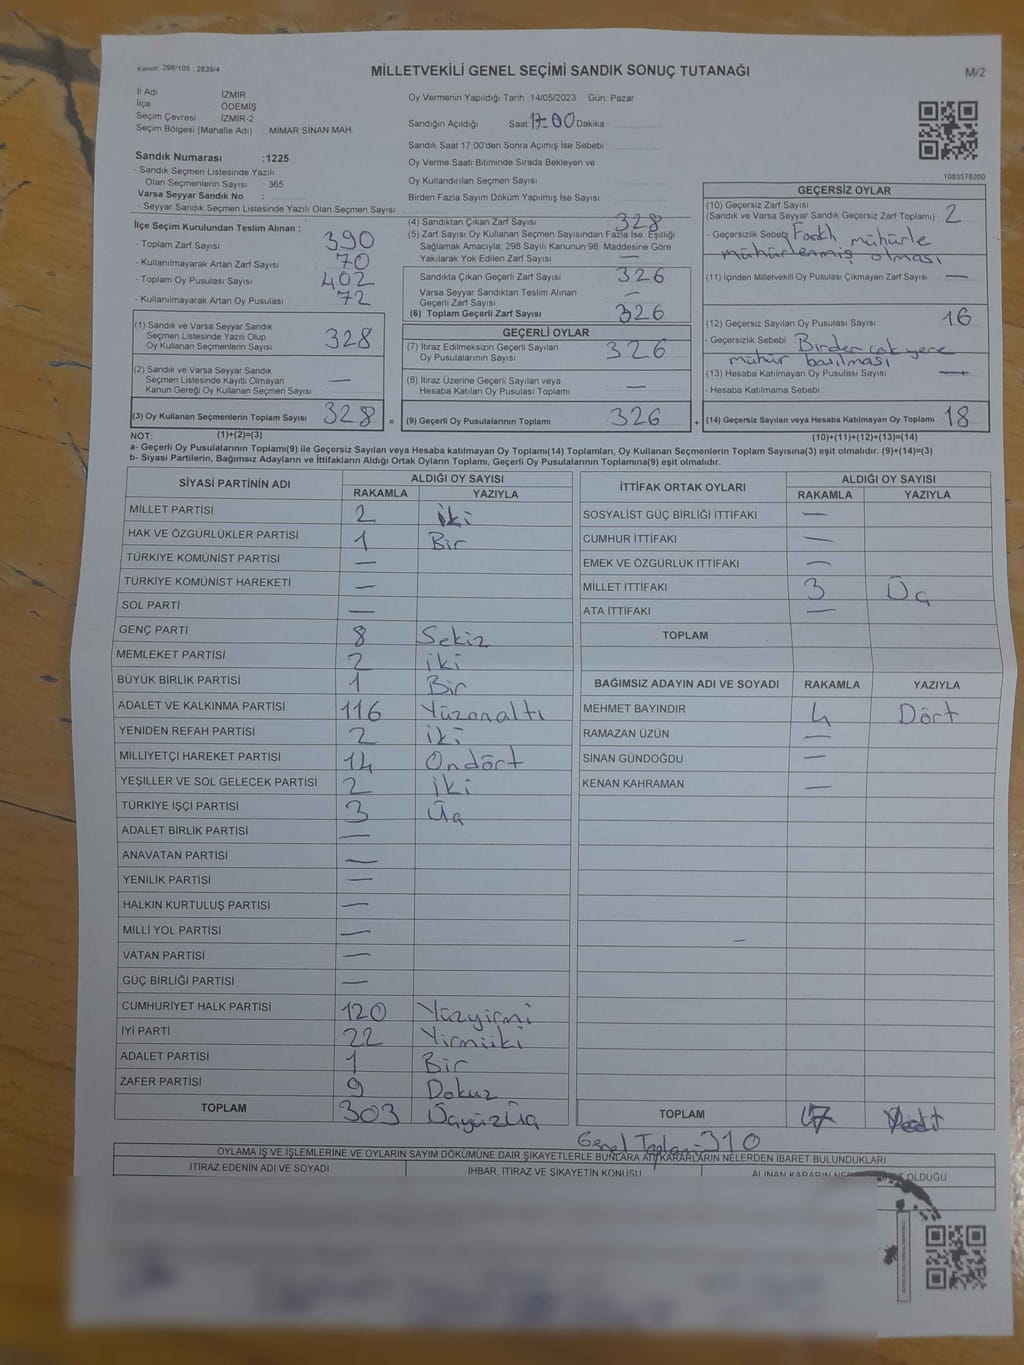 Kanun: 298/105 , 2839/4
MİLLETVEKİLİ GENEL SEÇİMİ SANDIK SONUÇ TUTANAĞI
M/2
İl Adı : İZMİR
İlçe : ÖDEMİŞ
Seçim Çevresi : İZMİR-2
Seçim Bölgesi (Mahalle Adı) : MİMAR SİNAN MAH.
Sandık Numarası :1225
- Sandık Seçmen Listesinde Yazılı
Olan Seçmenlerin Sayısı : 365
Varsa Seyyar Sandık No :
- Seyyar Sandık Seçmen Listesinde Yazılı Olan Seçmen Sayısı:
Oy Vermenin Yapıldığı Tarih :14/05/2023 Gün: Pazar
Sandığın Açıldığı Saat: 17:00 Dakika :
Sandık Saat 17:00'den Sonra Açımış İse Sebebi :
Oy Verme Saati Bitiminde Sırada Bekleyen ve
Oy Kullandırılan Seçmen Sayısı :
Birden Fazla Sayım Döküm Yapılmış İse Sayısı :
1083578200
İlçe Seçim Kurulundan Teslim Alınan ;
- Toplam Zarf Sayısı : 390
- Kullanılmayarak Artan Zarf Sayısı : 70
- Toplam Oy Pusulası Sayısı : 402
- Kullanılmayarak Artan Oy Pusulası : 72
(1) Sandık ve Varsa Seyyar Sandık
Seçmen Listesinde Yazılı Olup
Oy Kullanan Seçmenlerin Sayısı : 328
(2) Sandık ve Varsa Seyyar Sandık
Seçmen Listesinde Kayıtlı Olmayan
Kanun Gereği Oy Kullanan Seçmen Sayısı : —
(3) Oy Kullanan Seçmenlerin Toplam Sayısı : 328 =
(1)+(2)=(3)
(4) Sandıktan Çıkan Zarf Sayısı : 328
(5) Zarf Sayısı Oy Kullanan Seçmen Sayısından Fazla İse, Eşitliği
Sağlamak Amacıyla, 298 Sayılı Kanunun 98. Maddesine Göre
Yakılarak Yok Edilen Zarf Sayısı : —
Sandıkta Çıkan Geçerli Zarf Sayısı : 326
Varsa Seyyar Sandıktan Teslim Alınan
Geçerli Zarf Sayısı : —
(6) Toplam Geçerli Zarf Sayısı : 326
GEÇERLİ OYLAR
(7) İtiraz Edilmeksizin Geçerli Sayılan
Oy Pusulalarının Sayısı : 326
(8) İtiraz Üzerine Geçerli Sayılan veya
Hesaba Katılan Oy Pusulası Toplamı : —
(9) Geçerli Oy Pusulalarının Toplamı : 326 +
GEÇERSİZ OYLAR
(10) Geçersiz Zarf Sayısı
(Sandık ve Varsa Seyyar Sandık Geçersiz Zarf Toplamı) : 2
- Geçersizlik Sebebi : Farklı mühürle
mühürlenmiş olması
(11) İçinden Milletvekili Oy Pusulası Çıkmayan Zarf Sayısı : —
(12) Geçersiz Sayılan Oy Pusulası Sayısı : 16
- Geçersizlik Sebebi : Birden çok yere
mühür basılması
(13) Hesaba Katılmayan Oy Pusulası Sayısı : —
- Hesaba Katılmama Sebebi :
(14) Geçersiz Sayılan veya Hesaba Katılmayan Oy Toplamı : 18
(10)+(11)+(12)+(13)=(14)
NOT:
a- Geçerli Oy Pusulalarının Toplamı(9) ile Geçersiz Sayılan veya Hesaba katılmayan Oy Toplamı(14) Toplamları, Oy Kullanan Seçmenlerin Toplam Sayısına(3) eşit olmalıdır. (9)+(14)=(3)
b- Siyasi Partilerin, Bağımsız Adayların ve İttifakların Aldığı Ortak Oyların Toplamı, Geçerli Oy Pusulalarının Toplamına(9) eşit olmalıdır.
SİYASİ PARTİNİN ADI ALDIĞI OY SAYISI
RAKAMLA YAZIYLA
MİLLET PARTİSİ 2 iki
HAK VE ÖZGÜRLÜKLER PARTİSİ 1 Bir
TÜRKİYE KOMÜNİST PARTİSİ —
TÜRKİYE KOMÜNİST HAREKETİ —
SOL PARTİ —
GENÇ PARTİ 8 Sekiz
MEMLEKET PARTİSİ 2 iki
BÜYÜK BİRLİK PARTİSİ 1 Bir
ADALET VE KALKINMA PARTİSİ 116 Yüzonaltı
YENİDEN REFAH PARTİSİ 2 iki
MİLLİYETÇİ HAREKET PARTİSİ 14 Ondört
YEŞİLLER VE SOL GELECEK PARTİSİ 2 iki
TÜRKİYE İŞÇİ PARTİSİ 3 Üç
ADALET BİRLİK PARTİSİ —
ANAVATAN PARTİSİ —
YENİLİK PARTİSİ —
HALKIN KURTULUŞ PARTİSİ —
MİLLİ YOL PARTİSİ —
VATAN PARTİSİ —
GÜÇ BİRLİĞİ PARTİSİ —
CUMHURİYET HALK PARTİSİ 120 Yüzyirmi
İYİ PARTİ 22 Yirmiiki
ADALET PARTİSİ 1 Bir
ZAFER PARTİSİ 9 Dokuz
TOPLAM 303 Üçyüzüç
İTTİFAK ORTAK OYLARI ALDIĞI OY SAYISI
RAKAMLA YAZIYLA
SOSYALİST GÜÇ BİRLİĞİ İTTİFAKI —
CUMHUR İTTİFAKI —
EMEK VE ÖZGÜRLÜK İTTİFAKI —
MİLLET İTTİFAKI 3 Üç
ATA İTTİFAKI —
TOPLAM
BAĞIMSIZ ADAYIN ADI VE SOYADI RAKAMLA YAZIYLA
MEHMET BAYINDIR 4 Dört
RAMAZAN ÜZÜN —
SİNAN GÜNDOĞDU —
KENAN KAHRAMAN —
TOPLAM 7
Genel Toplam: 310
OYLAMA İŞ VE İŞLEMLERİNE VE OYLARIN SAYIM DÖKÜMÜNE DAİR ŞİKAYETLERLE BUNLARA AİT KARARLARIN NELERDEN İBARET BULUNDUKLARI
İTİRAZ EDENİN ADI VE SOYADI İHBAR, İTİRAZ VE ŞİKAYETİN KONUSU ALINAN KARARIN OLDUĞU